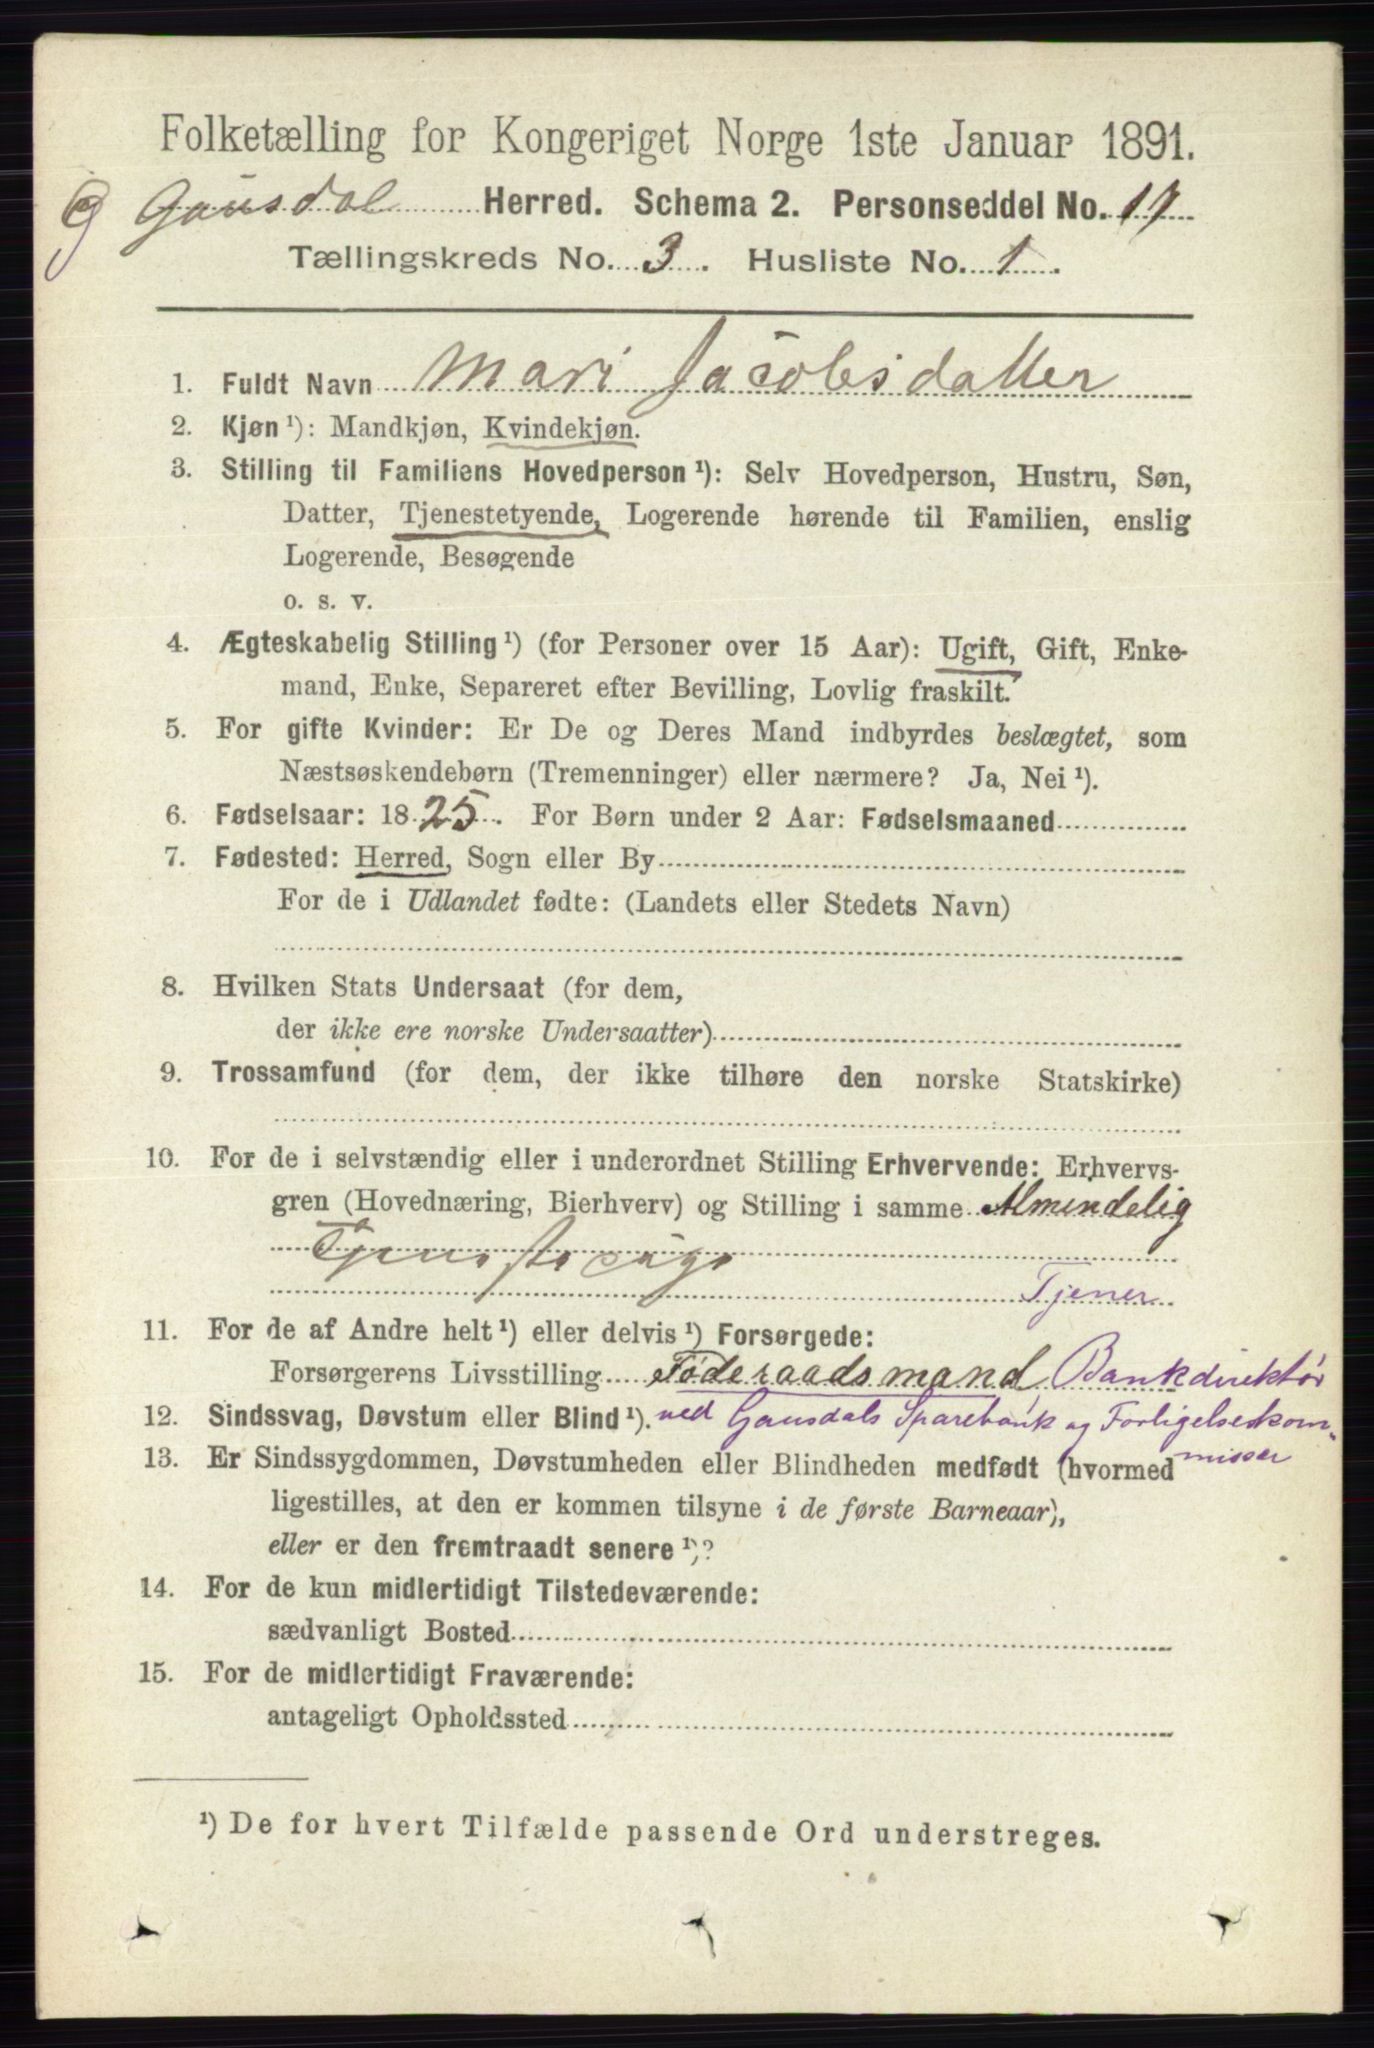 Folketælling for Kongeriget Norge 1ste Januar 1891.
Ø Gausdal Herred. Schema 2. Personseddel No. 17
Tællingskreds No. 3. Husliste No. 1.
1. Fuldt Navn Mari Jacobsdatter
2. Kjøn ¹): Mandkjøn, Kvindekjøn.
3. Stilling til Familiens Hovedperson ¹): Selv Hovedperson, Hustru, Søn,
Datter, Tjenestetyende, Logerende hørende til Familien, enslig
Logerende, Besøgende
o. s. v.
4. Ægteskabelig Stilling ¹) (for Personer over 15 Aar): Ugift, Gift, Enke-
mand, Enke, Separeret efter Bevilling, Lovlig fraskilt.
5. For gifte Kvinder: Er De og Deres Mand indbyrdes beslægtet, som
Næstsøskendebørn (Tremenninger) eller nærmere? Ja, Nei ¹).
6. Fødselsaar: 1825. For Børn under 2 Aar: Fødselsmaaned
7. Fødested: Herred, Sogn eller By
For de i Udlandet fødte: (Landets eller Stedets Navn)
8. Hvilken Stats Undersaat (for dem,
der ikke ere norske Undersaatter)
9. Trossamfund (for dem, der ikke tilhøre den norske Statskirke)
10. For de i selvstændig eller i underordnet Stilling Erhvervende: Erhvervs-
gren (Hovednæring, Bierhverv) og Stilling i samme Almindelig
Tjenestepige
Tjener
11. For de af Andre helt ¹) eller delvis ¹) Forsørgede:
Forsørgerens Livsstilling Føderaadsmand, Bankdirektør
12. Sindssvag, Døvstum eller Blind ¹). ved Gausdals Sparebank og Forligelseskom-
misær
13. Er Sindssygdommen, Døvstumheden eller Blindheden medfødt (hvormed
ligestilles, at den er kommen tilsyne i de første Barneaar),
eller er den fremtraadt senere ¹)?
14. For de kun midlertidigt Tilstedeværende:
sædvanligt Bosted
15. For de midlertidigt Fraværende:
antageligt Opholdssted
¹) De for hvert Tilfælde passende Ord understreges.